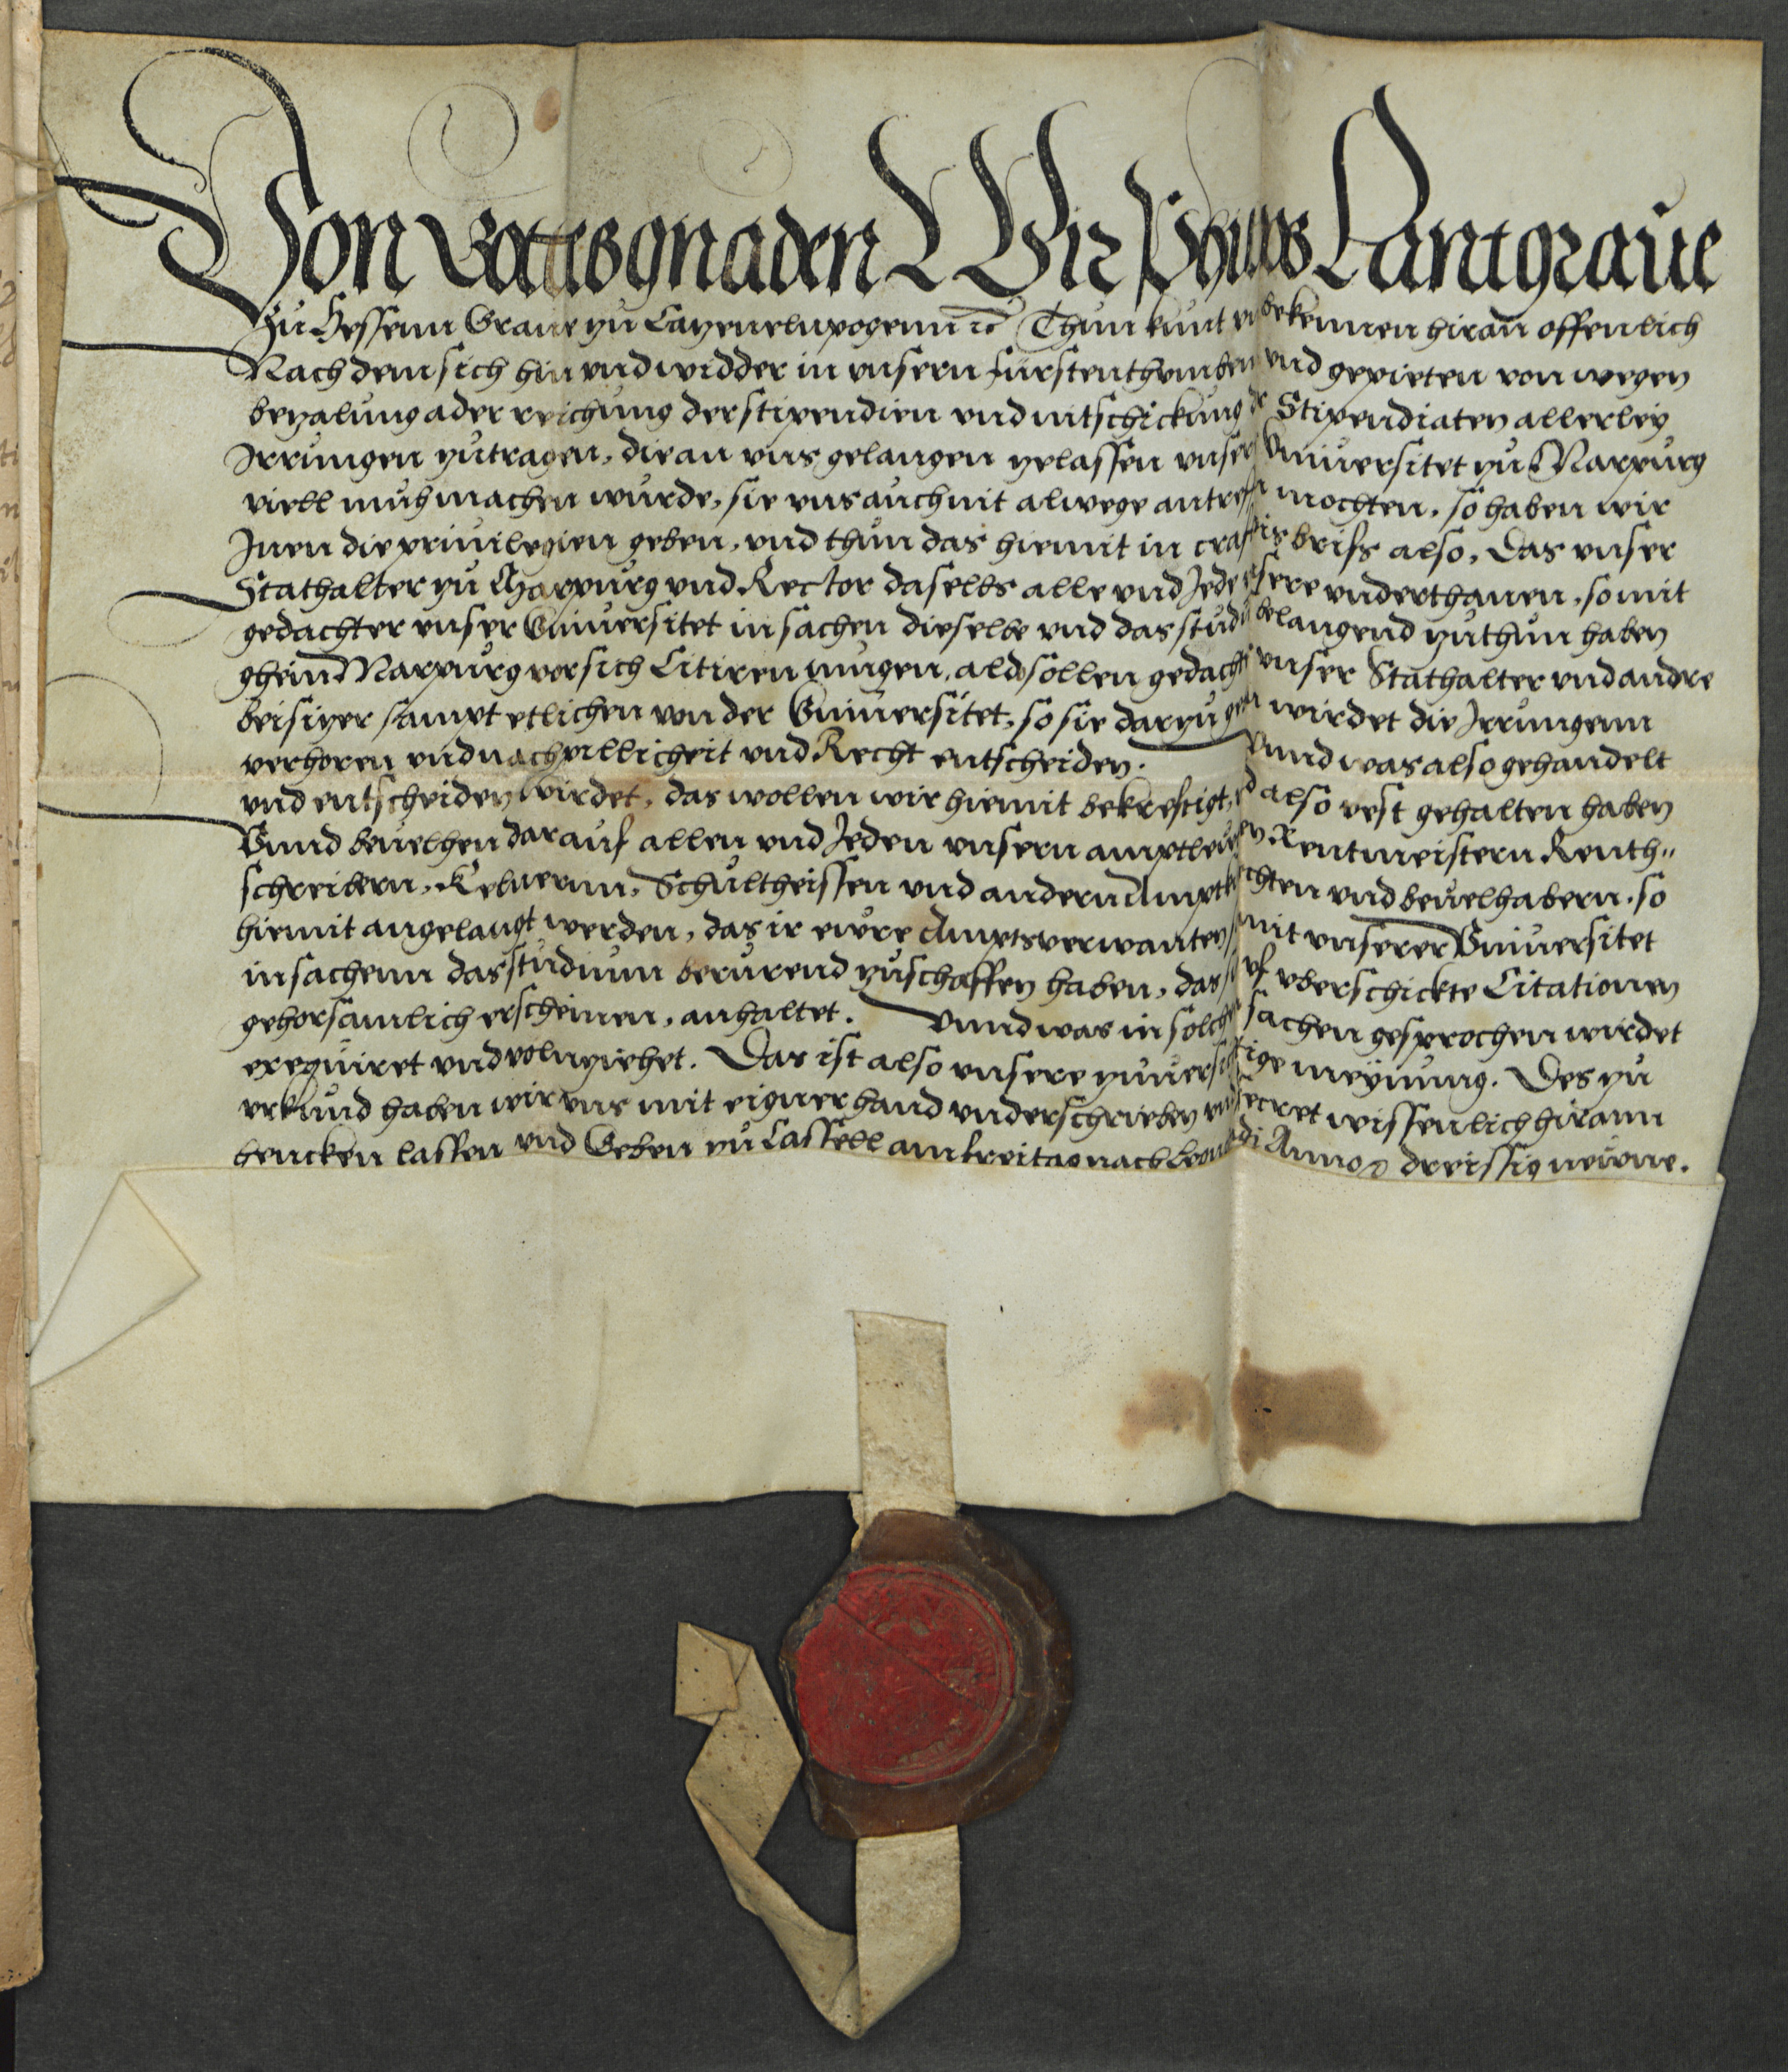 Von Gottes gnaden Wir Philips Lantgraue
Zu Hessenn Graue zu Catzenelnpogenn ꝛc Thun kunt vn bekennen hiran offenlich
Nach dem sich hin vnd widder in vnsern furstenthumben vnd gepieten von wegen
bezalung ader reichung der stipendien vnd vitschickung der Stipendiaten allerley
Irrungen zutragen, die an vns gelangen zelassen vnser Vniuersitet zu Marpurg
viell muh machen wurde, sie vns auch nit alwege antreffen mochten, so haben wir
Inen die priuilegien geben, vnd thun das hiemit in craft dis briefs also, Das vnser
Stathalter zu Marpurg vnd Rector daselbs alle vnd Jede vnsere vnderthanen, so mit
gedachter vnser Vniuersitet in sachen dieselbe vnd das studium belangend zuthun haben
ghein Marpurg vor sich Citiren mugen, als sollen gedachte vnser Stathalter vnd andre
beisitzer sampt etlichen von der Vniuersitet, so sie darzu wirdet die Irrungenn
verhoren vnd nach pillicheit vnd Recht entscheiden. Vnnd was also gehandelt
vnd entscheiden wirdet, das wollen wir hiemit bekreftigt, vnd also vest gehalten haben
Vnnd beuelhen darauf allen vnd Jeden vnsern amptleuten Rentmeistern Renth„
schreibern, Kelnernn, Schultheissen vnd andern Amptknechten vnd beuelhabern, so
hiemit angelangt werden, das ir ewre Amptsverwanten, so mit vnserer Vniuersitet
in sachenn das studium berurend zuschaffen haben, das vf vberschickte Citationen
gehorsamlich erscheinen, anhaltet. Vnnd was in solchen sachen gesprochen wirdet
exequiret vnd volnziehet. Das ist also vnsere zuuersichtige meynung. Des zu
vrkund haben wir vns mit eigner hand vnderschrieben vnd secret wissenlich hirann
hencken lassen vnd Geben zu Cassell am freitag nach Leonhardi Anno ꝛc dreissig neune.